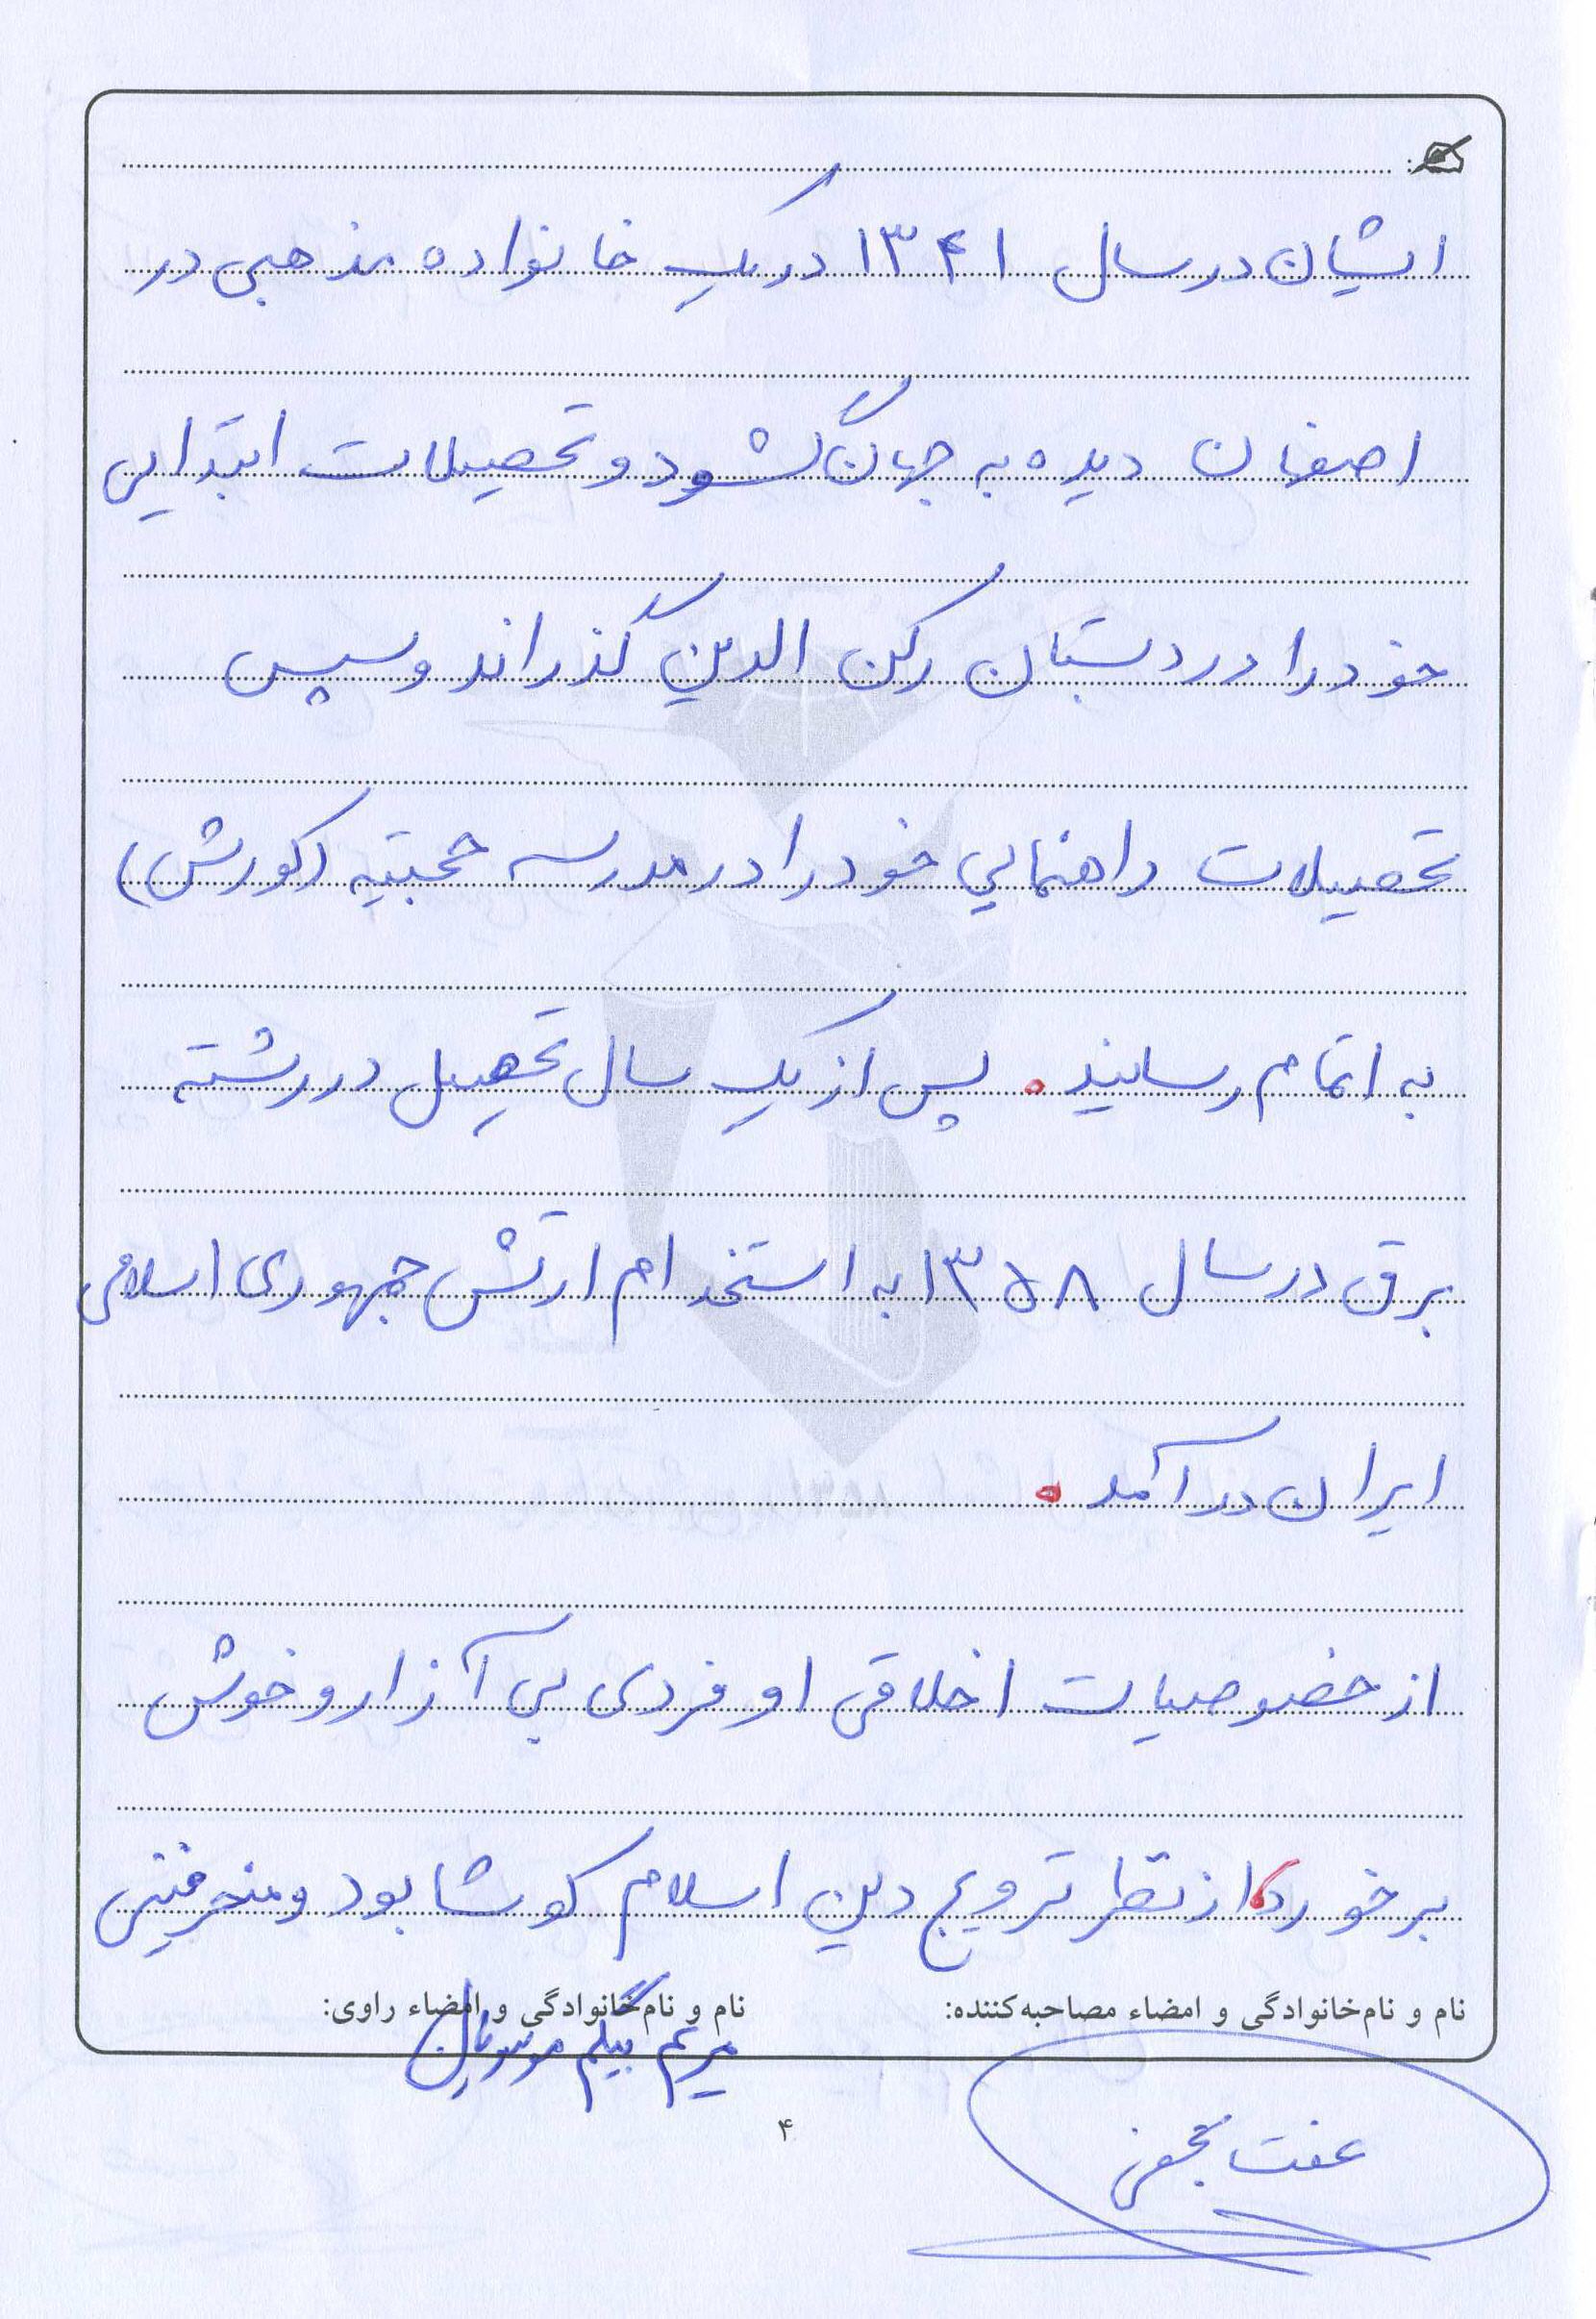 ایشان در سال ۱۳۴۱ در یک خانواده مذهبی در
اصفهان دیده به جهان گشود و تحصیلات ابتدایی
خود را در دبستان رکن الدین گذراند و سپس
تحصیلات راهنمایی خود را در مدرسه حجتیه (کورش)
به اتمام رسانید. پس از یک سال تحصیل در رشته
برق در سال ۱۳۵۸ به استخدام ارتش جمهوری اسلامی
ایران در آمد.
از خصوصیات اخلاقی او فردی بی آزار و خوش
برخورد، از نظر ترویج دین اسلام کوشا بود و
نام و نام‌خانوادگی و امضاء مصاحبه‌کننده: نام و نام‌خانوادگی و امضاء راوی:
مریم بیگم
عفت نجفی
۴